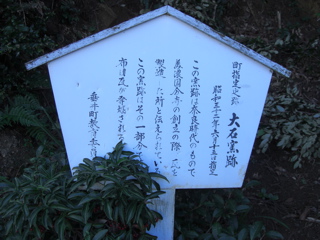 町指定史跡 大石窯跡
昭和三十二年六月十五日指定
この窯跡は奈良時代のもので
美濃国分寺の創立の際 瓦を
製造した所と伝えられている
この窯跡はその一部分
布目瓦が発掘される
垂井町教育委員